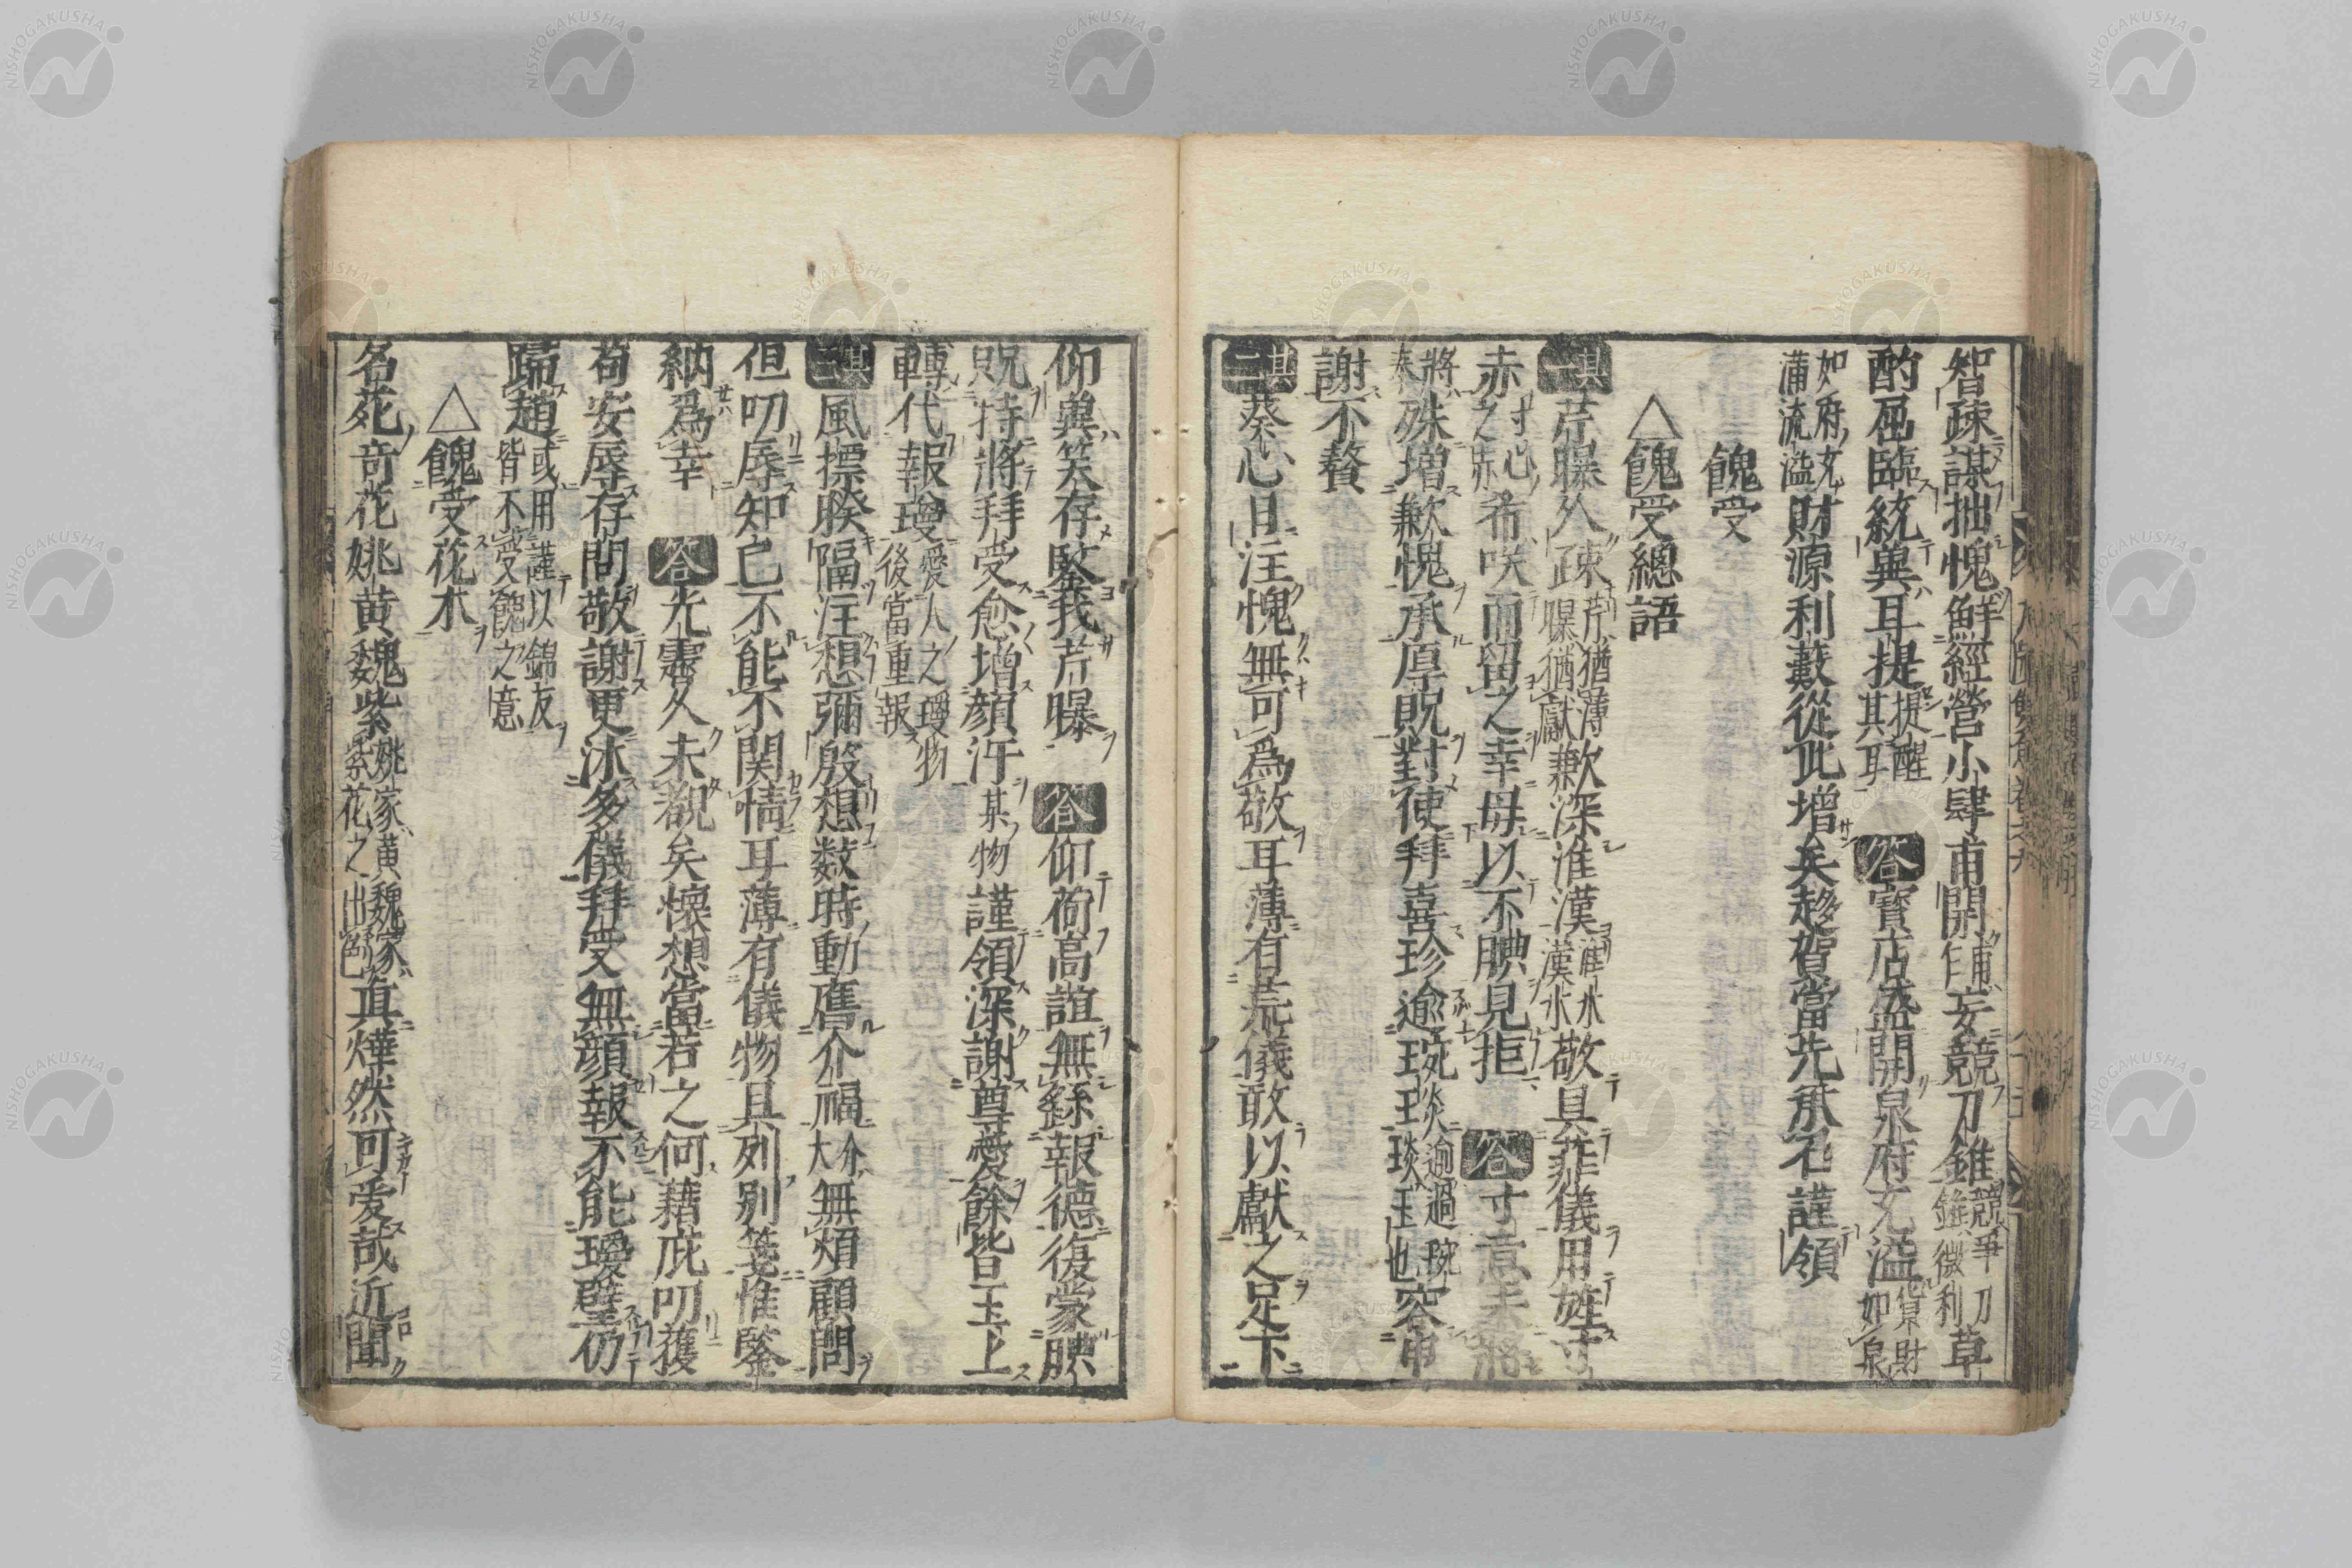 智疎謀拙愧鮮經營小肆甫開鋪妄競刀錐競爭刀錐微利草
酌屈臨統兾耳提提醒其耳 答 寳店盛開泉府充溢貨財如泉
如府充滿流溢財源利藪從此增矣趍賀當先承召謹領
餽受
△餽受總語
其一 芹曝久疎芹猶薄曝猶獻歉深淮漢淮水漢水敬具菲儀用旌寸
赤寸心之赤希咲而留之幸毋以不腆見拒 答 寸意未將
將奉殊增歉愧承厚貺對使拜喜珍逾琬琰逾過琬琰玉也容申
謝不贅
其二 葵心日注愧無可爲敬耳薄有荒儀敢以獻之足下
仰兾笑存鍳我芹曝 答 仰荷高誼無繇報德復蒙腆
貺持將拜受愈增顔汗某物謹領深謝尊愛餘皆玉上
轉代報瓊愛人之瓊物後當重報
其三 風摽暌隔注想彌殷想数時動膺介福介大無煩顧問
但叨辱知己不能不関情耳薄有儀物具列別箋惟鍳
納爲幸 答 光霽久未覩矣懷想當若之何藉庇叨獲
苟安辱存問敬謝更沐多儀拜受無顔報不能璦璧仍
歸趙或用謹以錦友皆不受餽之意
△餽受花木
名花奇花姚黄魏紫姚家黄魏家紫花之出色者真燁然可爱哉近聞